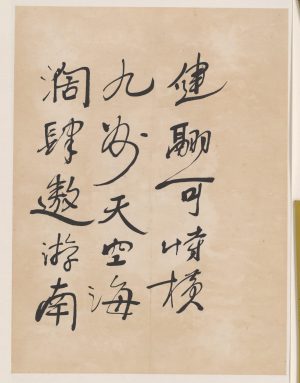 健翮可恃横
九州天空海
濶肆遨游南